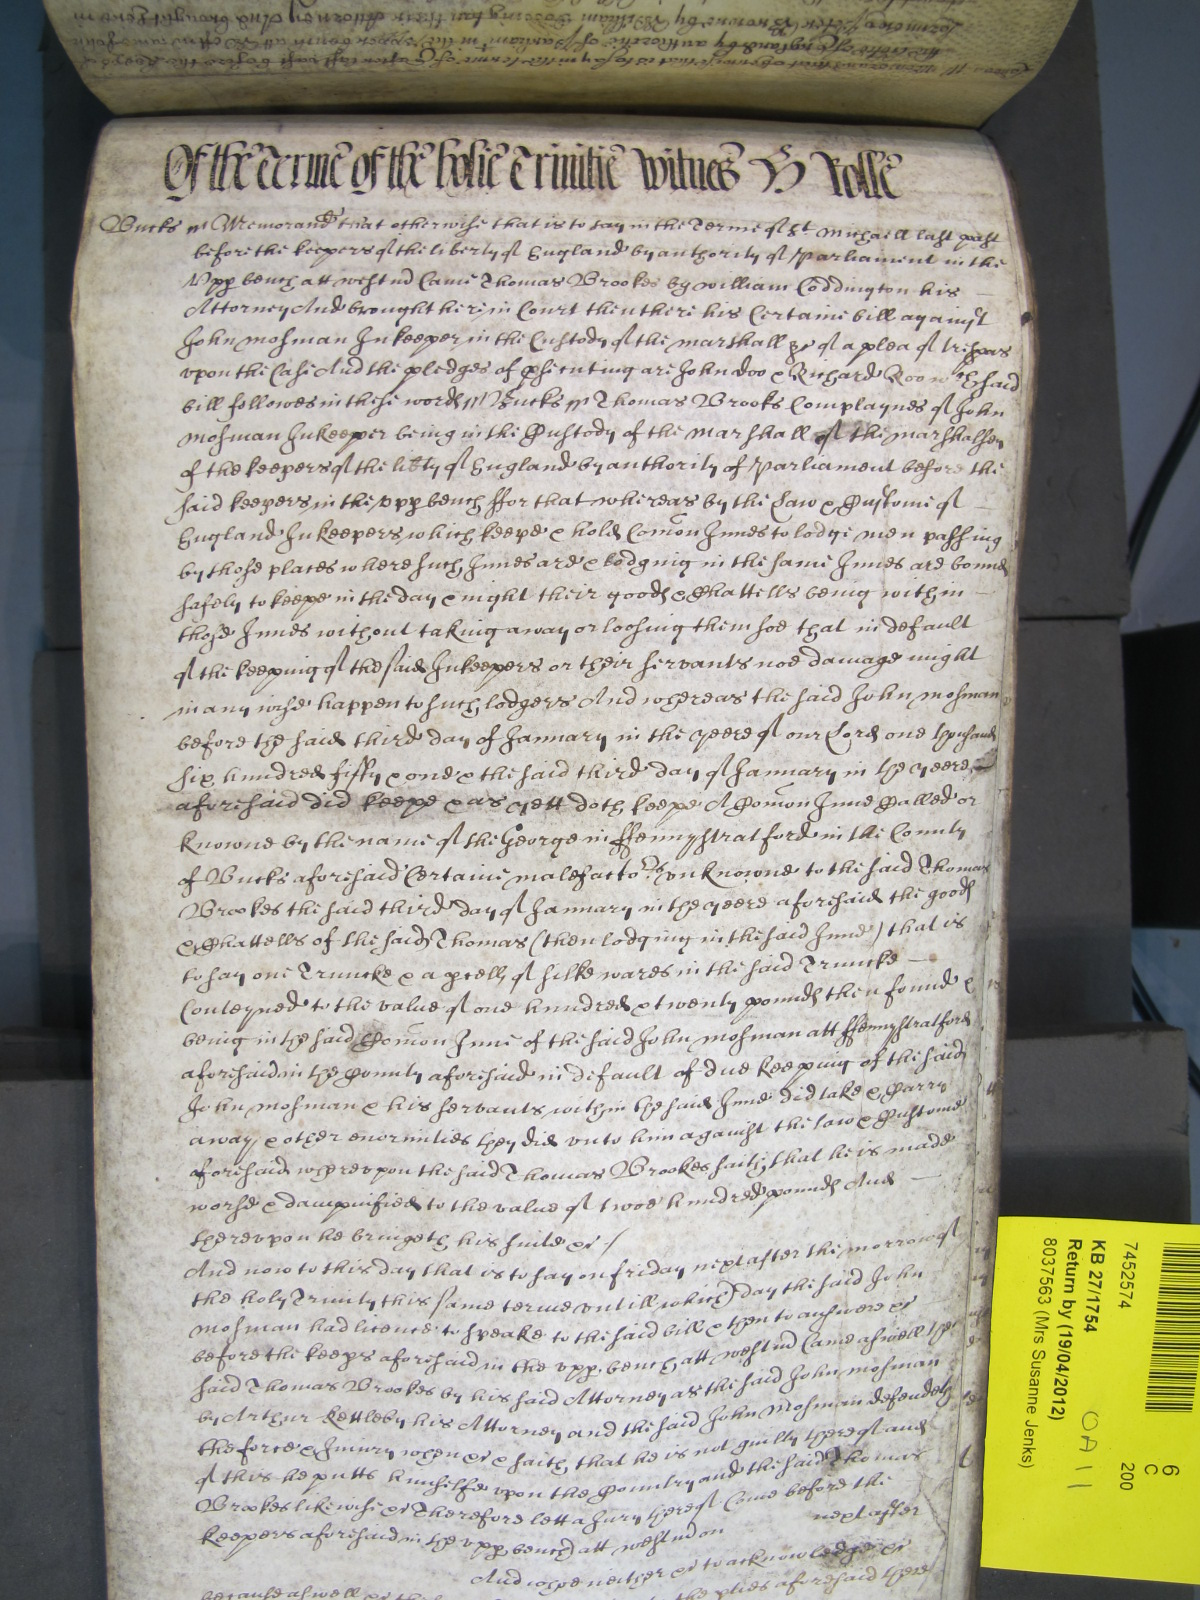 Of the Terme of the holie Trinitie Witnes H Rolle
Bucks ss Memorand that otherwise that is to say in the Terme of St Michaell last past
before the keepers of the liberty of England by authority of Parliament in the
Upp bench att westmd Came Thomas Brookes by William Coddington his
Attorney And brought here in Court then there his Certaine bill against
John Mosman Inkeeper in the Custody of the marshall &c of a plea of trespas
vpon the Case And the pledges of psecuting are John Doo & Richard Roo wch said
bill followes in these words ss Bucks ss Thomas Brooks Complaynes of John
Mosman Inkeeper being in the Custody of the Marshall of the marshalsey
of the keepers of the libty of England by authority of Parliament before the
said keepers in the vpp bench ffor that whereas by the Law & Custome of
England Inkeepers which keepe & hold Comon Innes to lodge men passing
by those places where such Innes are & lodging in the same Innes are bound
safely to keepe in the day & night their goods & Chattells being within
those Innes without taking away or loosing them soe that in default
of the keeping of the said Inkeepers or their servants noe damage might
in any wise happen to such lodgers And whereas the said John Mosman
before the said third day of January in the yeere of our Lord one thousand
six hundred fifty & one & the said third day of January in the yeere
aforesaid did keepe & as yett doth keepe A Comon Inne Called or
knowne by the name of the George in ffennystratford in the County
of Bucks aforesaid Certaine malefactors vnknowne to the said Thomas
Brookes the said third day of January in the yeere aforesaid the goods
& Chattells of the said Thomas (then lodging in the said Inne) that is
to say one Truncke & a pcell of silke wares in the said Truncke
Conteyned to the value of one hundred & twenty pounds then found &
being in the said Comon Inne of the said John Mosman att ffennystratford
aforesaid in the County aforesaid in default of due keeping of the said
John Mosman & his servants within the said Inne did take & Carry
away & other enormities they did vnto him against the law & Custome
aforesaid wherevpon the said Thomas Brookes saith that he is made
worse & dampnified to the value of twoe hundred pounds And
therevpon he bringeth his suite &c /
And now to this day that is to say on friday next after the morrow of
the holy Trinity this same terme vntill which day the said John
Mosman had licence to speake to the said bill & then to answere &c
before the keeps aforesaid in the vpp bench att westmd Came aswell the
said Thomas Brookes by his said Attorney as the said John Mosman
by Arthur Kettleby his Attorney and the said John Mosman defendeth
the force & Iniury when &c & saith that he is not guilty thereof and
of this he putts himselfe vpon the Country and the said Thomas
Brookes likewise &c Therefore lett a Jury thereof Come before the
keepers aforesaid in the vpp bench att westmd on next after
And whoe neither &c to acknowledge &c
because aswell &c the pties aforesaid there
7452574
KB 27/1754
Return by (19/04/2012)
8037563 (Mrs Susanne Jenks)
6
C
200
OA 11